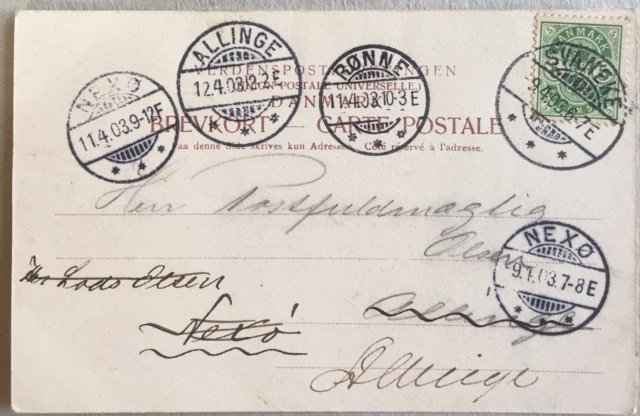 DANMARK
5 5
SVANEKE
9.4.03.6-7E
ALLINGE
12.4.03.12-2E
RØNNE
11.4.03.10-3E
NEXØ
11.4.03.9-12F
VERDENSPOSTFORENINGEN
(UNION POSTALE UNIVERSELLE.)
DANMARK
BREVKORT — CARTE POSTALE
Paa denne Side skrives kun Adressen. Côté réservé à l'adresse.
Herr Postfuldmægtig
Olsen
NEXØ
9.4.03.7-8E
Olsen
Allinge
Nexö
Allinge